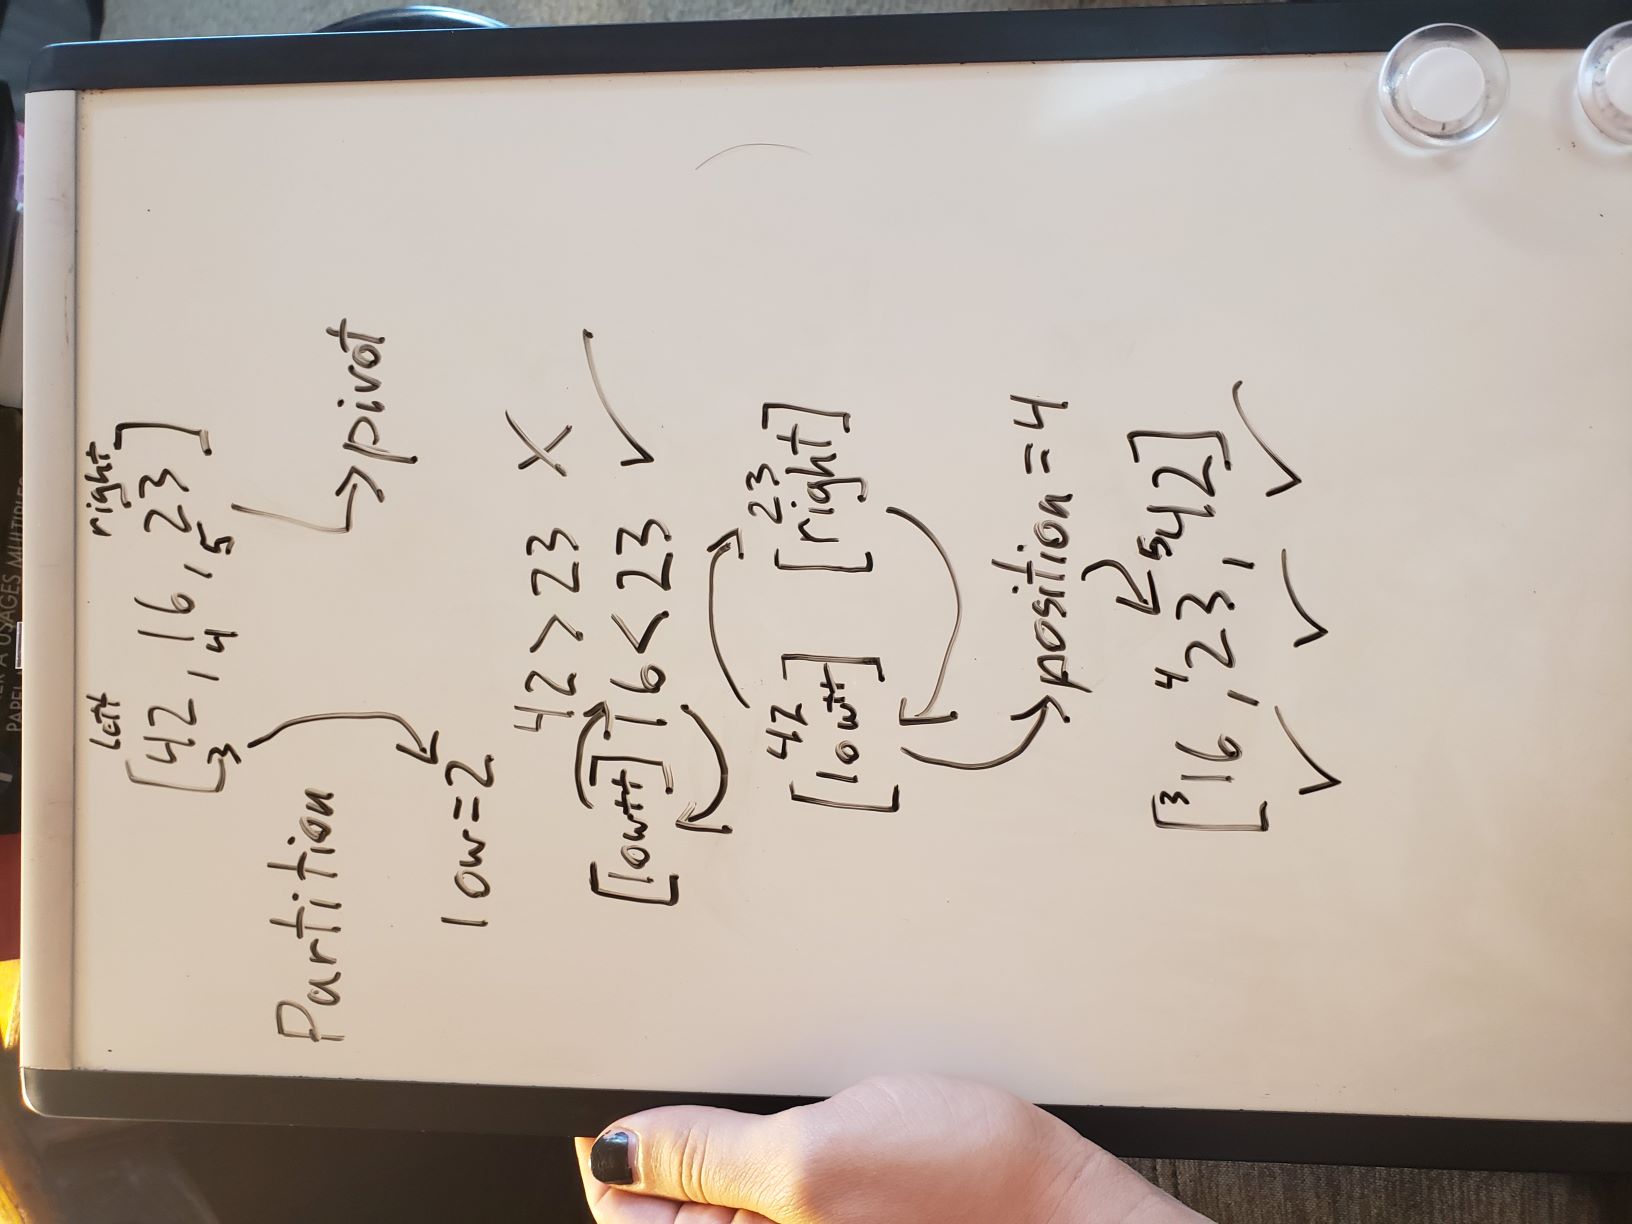 ER A USAGES MULTIPLE
PAPEL
left right
[42, 16, 23]
3 4 5
Partition
pivot
low=2
42 > 23 X
[low++] 16 < 23 ✓
42 23
[low++] [right]
position = 4
[³16, ⁴23, ⁵42]
✓ ✓ ✓